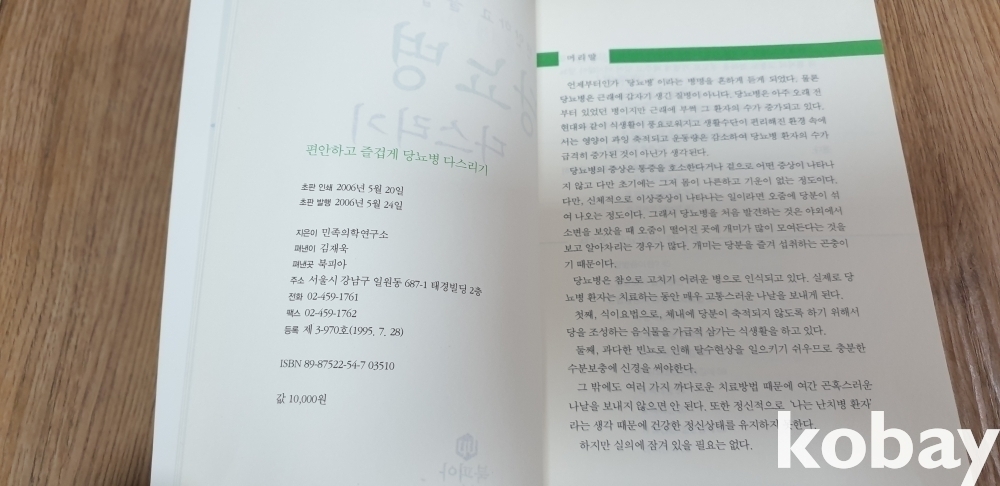 편안하고 즐겁게 당뇨병 다스리기
초판 인쇄 2006년 5월 20일
초판 발행 2006년 5월 24일
지은이 민족의학연구소
펴낸이 김재욱
펴낸곳 북피아
주소 서울시 강남구 일원동 687-1 태경빌딩 2층
전화 02-459-1761
팩스 02-459-1762
등록 제 3-970호(1995. 7. 28)
ISBN 89-87522-54-7 03510
값 10,000원
머리말
언제부터인가 '당뇨병'이라는 병명을 흔하게 듣게 되었다. 물론
당뇨병은 근래에 갑자기 생긴 질병이 아니다. 당뇨병은 아주 오래 전
부터 있었던 병이지만 근래에 부쩍 그 환자의 수가 증가되고 있다.
현대와 같이 식생활이 풍요로워지고 생활수단이 편리해진 환경 속에
서는 영양이 과잉 축적되고 운동량은 감소하여 당뇨병 환자의 수가
급격히 증가된 것이 아닌가 생각된다.
당뇨병의 증상은 통증을 호소한다거나 겉으로 어떤 증상이 나타나
지 않고 다만 초기에는 그저 몸이 나른하고 기운이 없는 정도이다.
다만, 신체적으로 이상증상이 나타나는 일이라면 오줌에 당분이 섞
여 나오는 정도이다. 그래서 당뇨병을 처음 발견하는 것은 야외에서
소변을 보았을 때 오줌이 떨어진 곳에 개미가 많이 모여든다는 것을
보고 알아차리는 경우가 많다. 개미는 당분을 즐겨 섭취하는 곤충이
기 때문이다.
당뇨병은 참으로 고치기 어려운 병으로 인식되고 있다. 실제로 당
뇨병 환자는 치료하는 동안 매우 고통스러운 나날을 보내게 된다.
첫째, 식이요법으로, 체내에 당분이 축적되지 않도록 하기 위해서
당을 조성하는 음식물을 가급적 삼가는 식생활을 하고 있다.
둘째, 과다한 빈뇨로 인해 탈수현상을 일으키기 쉬우므로 충분한
수분보충에 신경을 써야한다.
그 밖에도 여러 가지 까다로운 치료방법 때문에 여간 곤혹스러운
나날을 보내지 않으면 안 된다. 또한 정신적으로 '나는 난치병 환자'
라는 생각 때문에 건강한 정신상태를 유지하지 못한다.
하지만 실의에 잠겨 있을 필요는 없다.
kobay